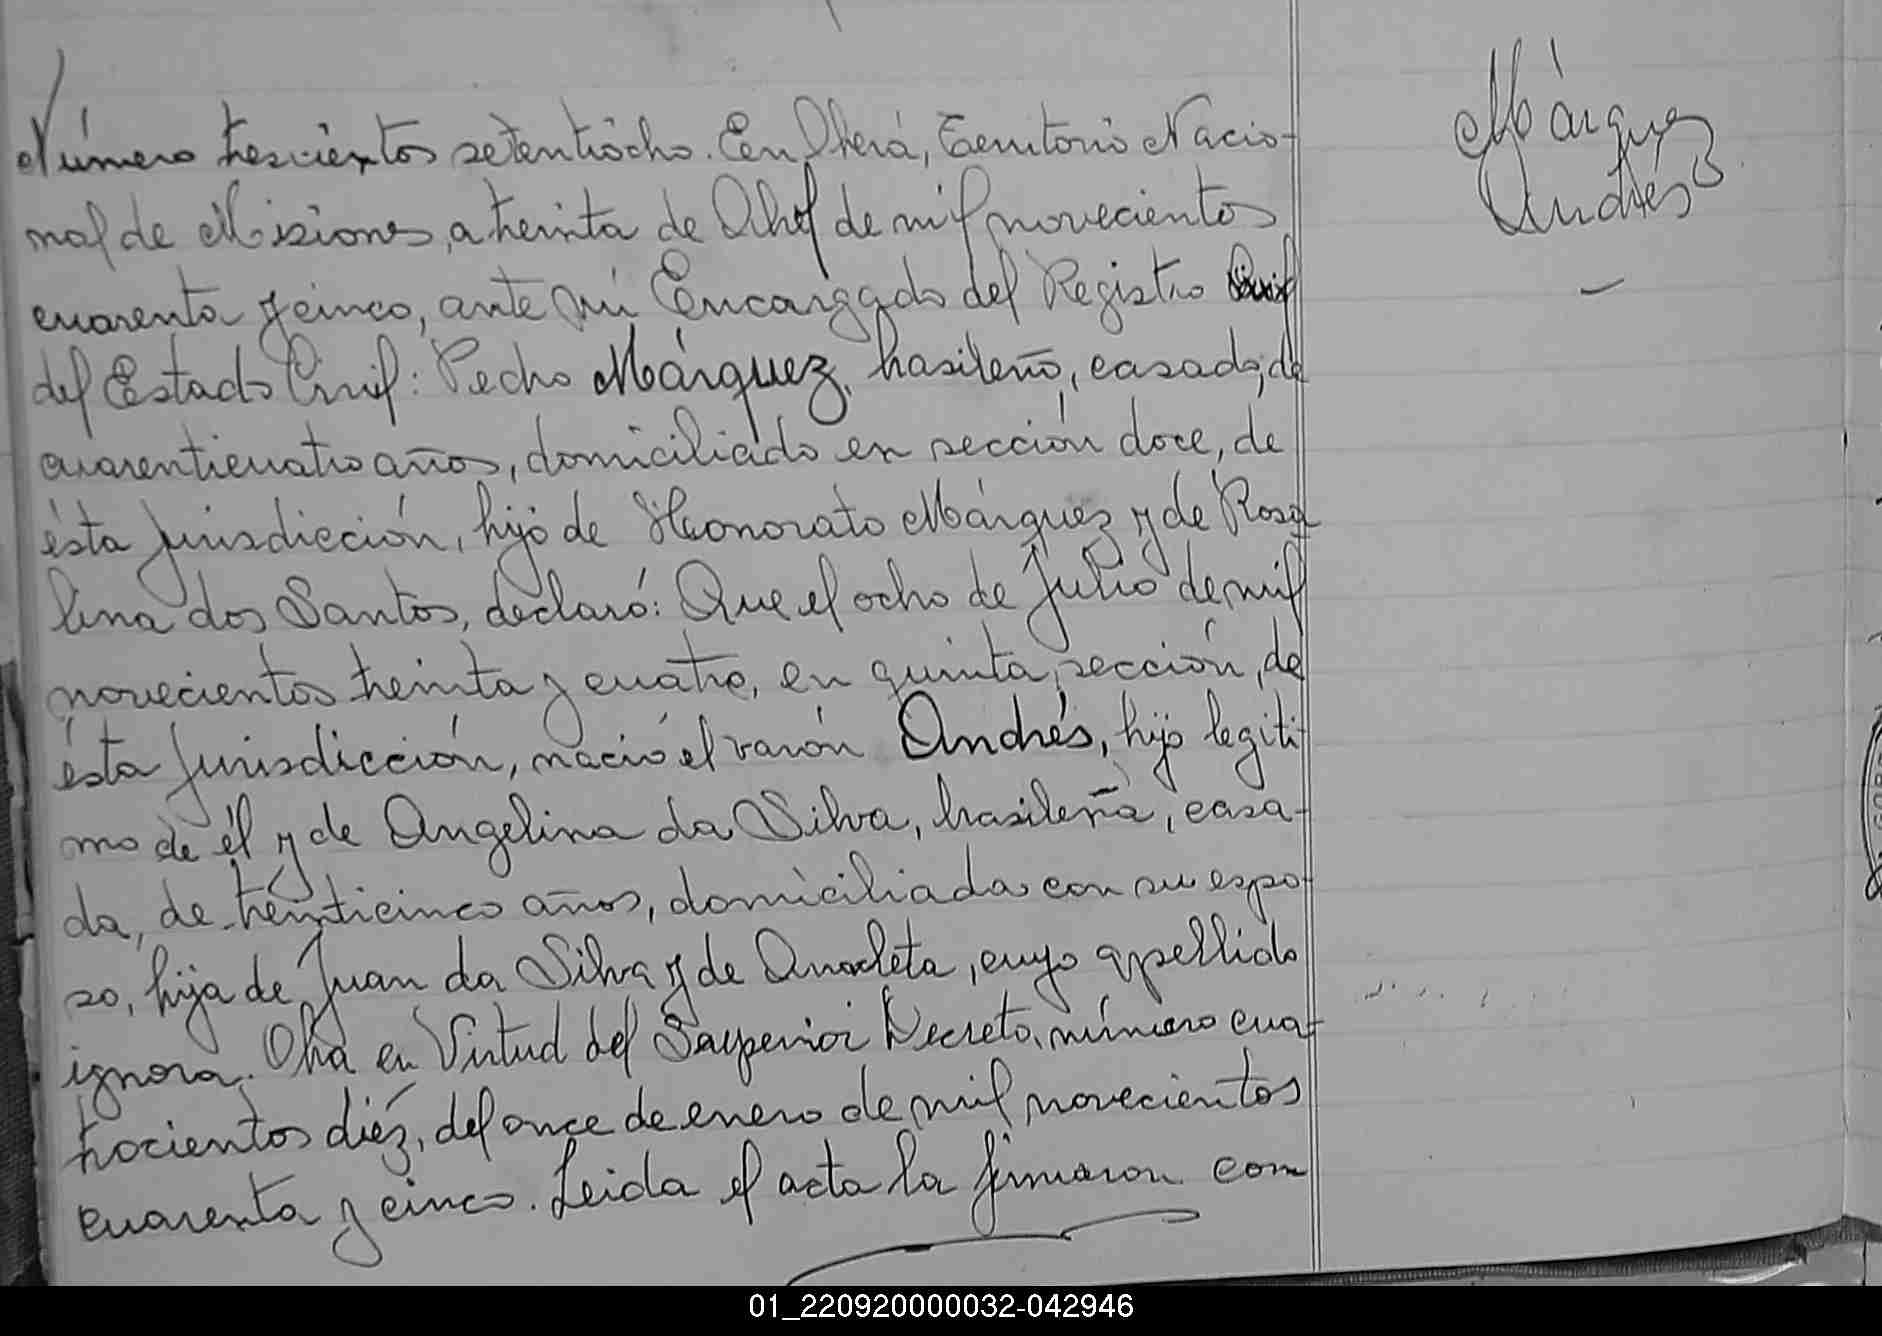 Número trescientos setentiòcho. En Oberá, Territorio Nacio-
nal de Misiones, a treinta de Abril de mil novecientos
cuarenta y cinco, ante mi Encargado del Registro
del Estado Civil: Pedro Márquez, brasileño, casado, de
cuarenticuatro años, domiciliado en sección doce, de
ésta jurisdicción, hijo de Honorato Márquez y de Rosa
lina dos Santos, declaró: Que el ocho de Julio de mil
novecientos treinta y cuatro, en quinta sección, de
ésta Jurisdicción, nació el varón Andrés, hijo legiti
mo de él y de Angelina da Silva, brasileña, casa-
da, de treinticinco años, domiciliada con su espo-
so, hija de Juan da Silva y de Anacleta, cuyo apellido
ignora. Obra en Virtud del Superior Decreto, número cua-
trocientos diéz, del once de enero de mil novecientos
cuarenta y cinco. Leida el acta la firmaron com
Márquez
Andrés
01_220920000032-042946